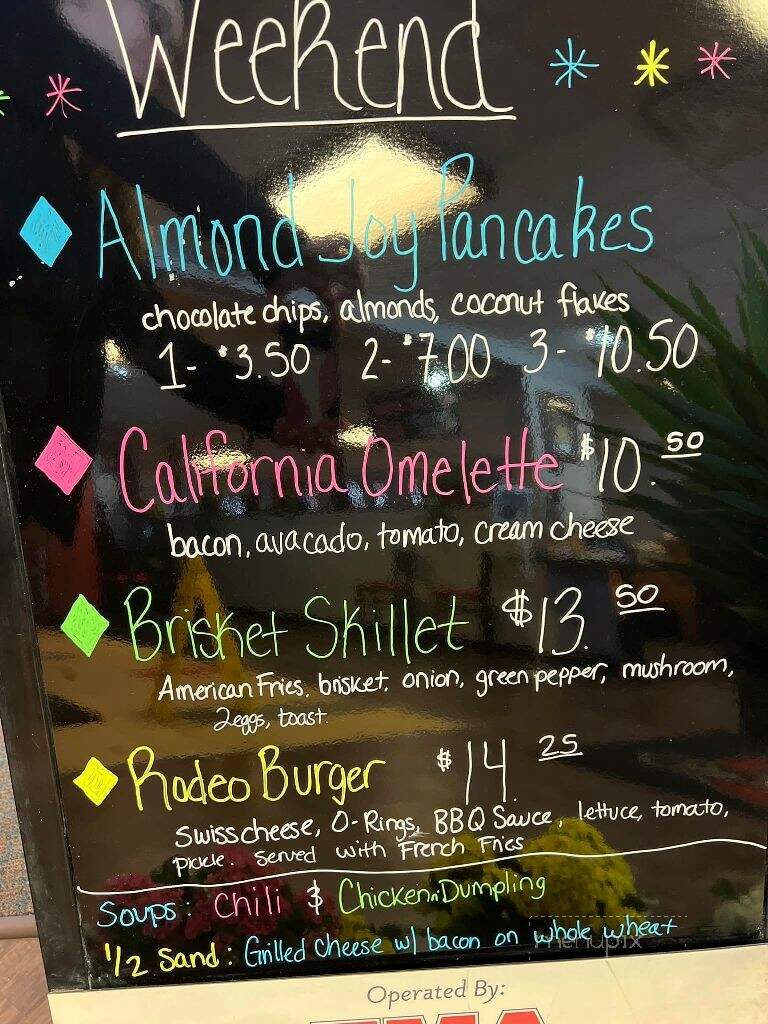 Weekend
Almond Joy Pancakes
chocolate chips, almonds, coconut flakes
1- $3.50 2- $7.00 3- $10.50
California Omelette $10.50
bacon, avacado, tomato, cream cheese
Brisket Skillet $13.50
American Fries, brisket, onion, green pepper, mushroom,
2 eggs, toast.
Rodeo Burger $14.25
Swiss cheese, O-Rings, BBQ Sauce, lettuce, tomato,
pickle. Served with French Fries
Soups: Chili & Chicken n' Dumpling
1/2 Sand: Grilled Cheese w/ bacon on whole wheat
menupix
Operated By: